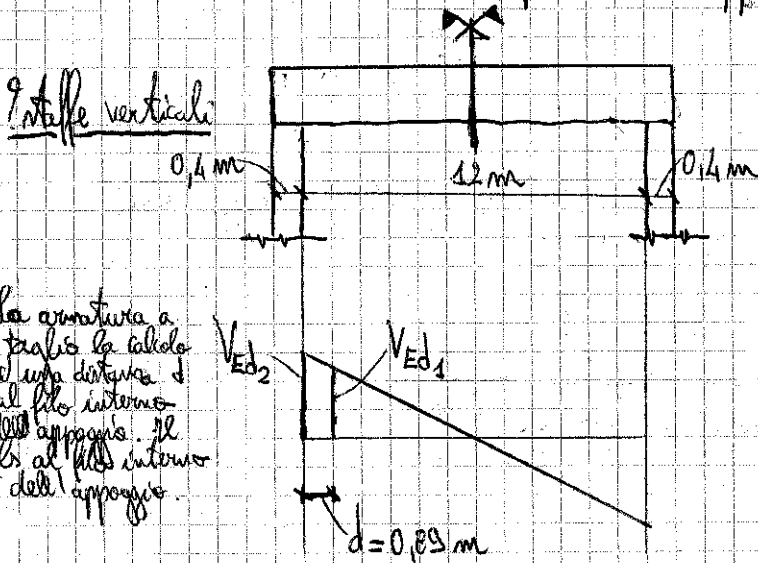 staffe verticali
0,4 m
12 m
0,4 m
armatura a
taglio la calcolo
distanza d
al filo interno
dell'appoggio. Il
cls al filo interno
dell'appoggio.
VEd2
VEd1
d=0,89 m